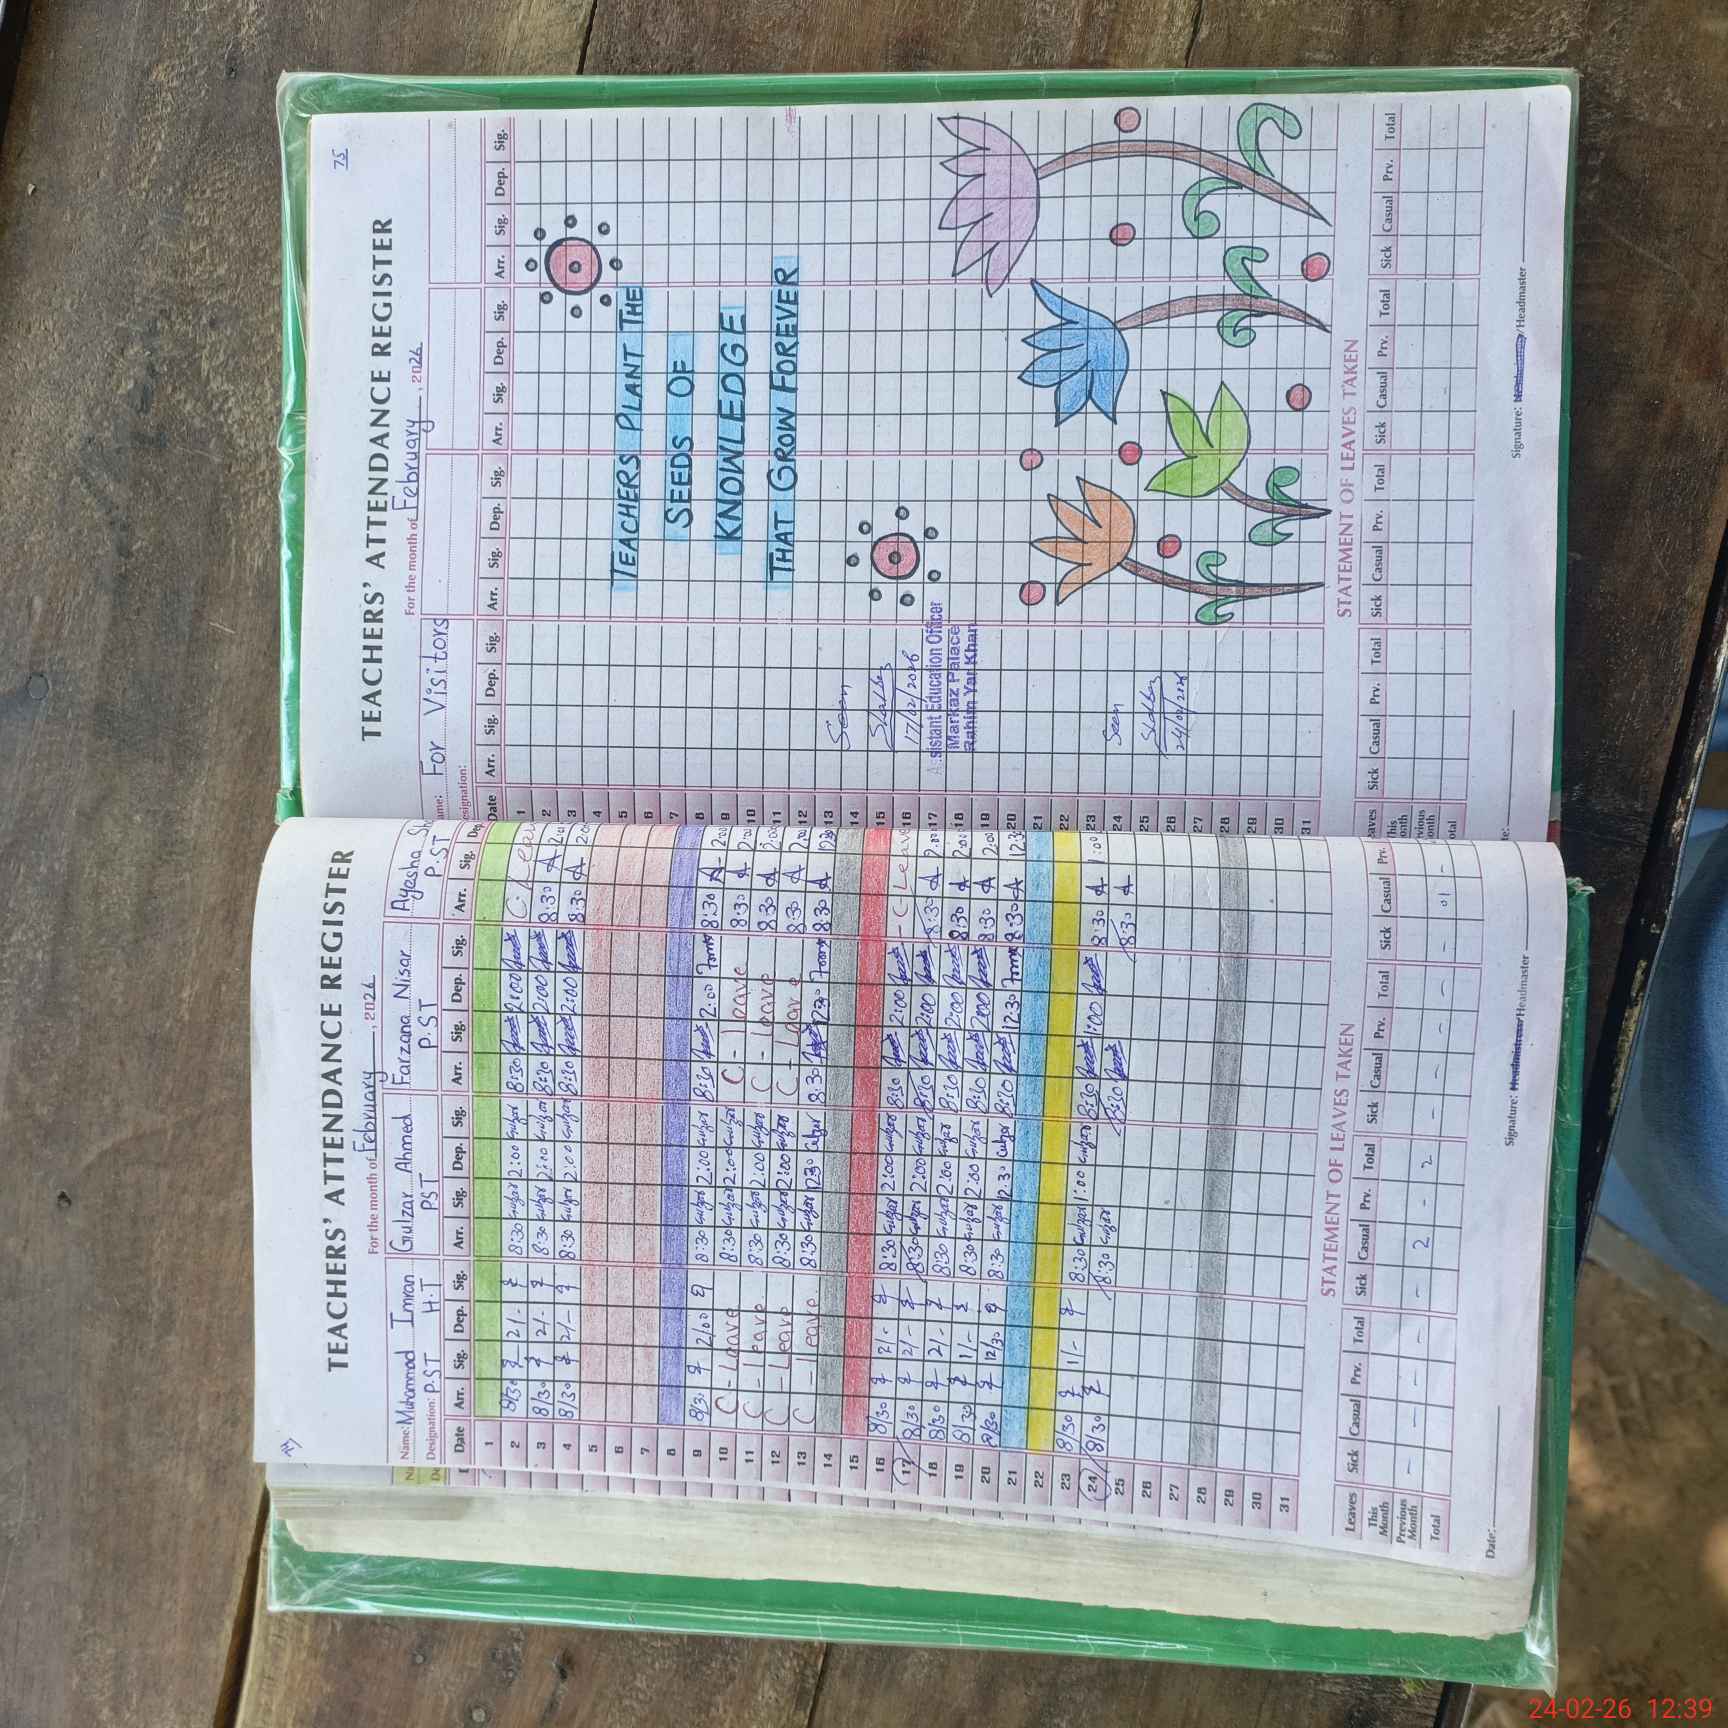 TEACHERS' ATTENDANCE REGISTER
For the month of February, 2026
Name: Muhammad Imran Gulzar Ahmed Farzana Nisar Ayesha
Designation: P.ST H.T PST P.ST P.ST
Date Arr. Sig. Dep. Sig. Arr. Sig. Dep. Sig. Arr. Sig. Dep. Sig. Arr. Sig.
1
2 8/30 2/- 8:30 2:00 8:30 2:00 C Leav
3 8/30 2/- 8:30 2:00 8:30 2:00 8:30 A
4 8/30 2/- 8:30 2:00 8:30 2:00 8:30 A
5
6
7
8
9 8/30 2/00 8:30 2:00 8:30 2:00 8:30 A 2:00
10 C - Leave 8:30 2:00 C - leave 8:30 A 2:00
11 C - leave 8:30 2:00 C - leave 8:30 A 2:00
12 C - Leave 8:30 2:00 C - leave 8:30 A 2:00
13 C - leave 8:30 12:30 8:30 12:30 8:30 A
14
15
16 8/30 2/- 8:30 2:00 8:30 2:00 - C Leave
17 8/30 2/- 8:30 2:00 8:30 2:00 8:30 A 2:00
18 8/30 2/- 8:30 2:00 8:30 2:00 8:30 A 2:00
19 8/30 1/- 8:30 2:00 8:30 2:00 8:30 A 2:00
20 8/30 12/30 8:30 12:30 8:30 12:30 8:30 A
21
22
23 8/30 1/- 8:30 1:00 8:30 1:00 8:30 A 1:00
24 8/30 8:30 8:30 8:30 A
25
26
27
28
29
30
31
STATEMENT OF LEAVES TAKEN
Leaves Sick Casual Prv. Total Sick Casual Prv. Total Sick Casual Prv. Total Sick Casual Prv.
This Month
Previous Month - - - - - 2 - 2 - - - - - 01 -
Total
Date: Signature: /Headmaster
75
TEACHERS' ATTENDANCE REGISTER
For the month of February, 2026
For Visitors
Date Arr. Sig. Dep. Sig. Arr. Sig. Dep. Sig. Arr. Sig. Dep. Sig. Arr. Sig. Dep. Sig.
1
2
3
4
5
6
7
8
9
10
11
12
13
14
15
16
17
18
19
20
21
22
23
24
25
26
27
28
29
30
31
TEACHERS PLANT THE
SEEDS OF
KNOWLEDGE
THAT GROW FOREVER
Seen
17/02/2026
Assistant Education Officer
Markaz Palace
Rahim Yar Khan
Seen
24/02/2026
STATEMENT OF LEAVES TAKEN
Sick Casual Prv. Total Sick Casual Prv. Total Sick Casual Prv. Total Sick Casual Prv. Total
Signature: /Headmaster
24-02-26 12:39